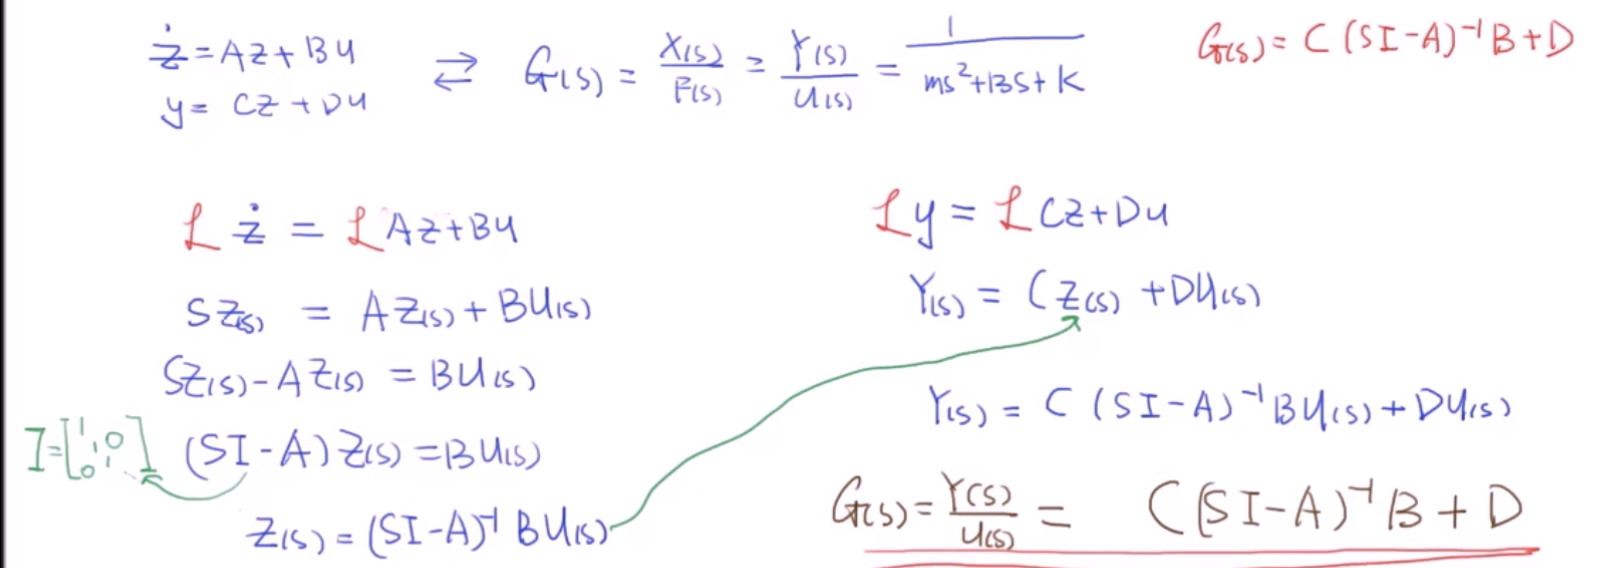 ż = Az + Bu
y = Cz + Du
⇄ G(s) = X(s)/F(s) = Y(s)/U(s) = 1/(ms²+Bs+K)
G(s) = C (SI-A)⁻¹ B + D
ℒ ż = ℒ Az + Bu
SZ(s) = AZ(s) + BU(s)
SZ(s) - AZ(s) = BU(s)
I = [1 1 0 0 1 1] (SI-A) Z(s) = BU(s)
Z(s) = (SI-A)⁻¹ BU(s)
ℒ y = ℒ Cz + Du
Y(s) = C Z(s) + DU(s)
Y(s) = C (SI-A)⁻¹ BU(s) + DU(s)
G(s) = Y(s)/U(s) = C (SI-A)⁻¹ B + D